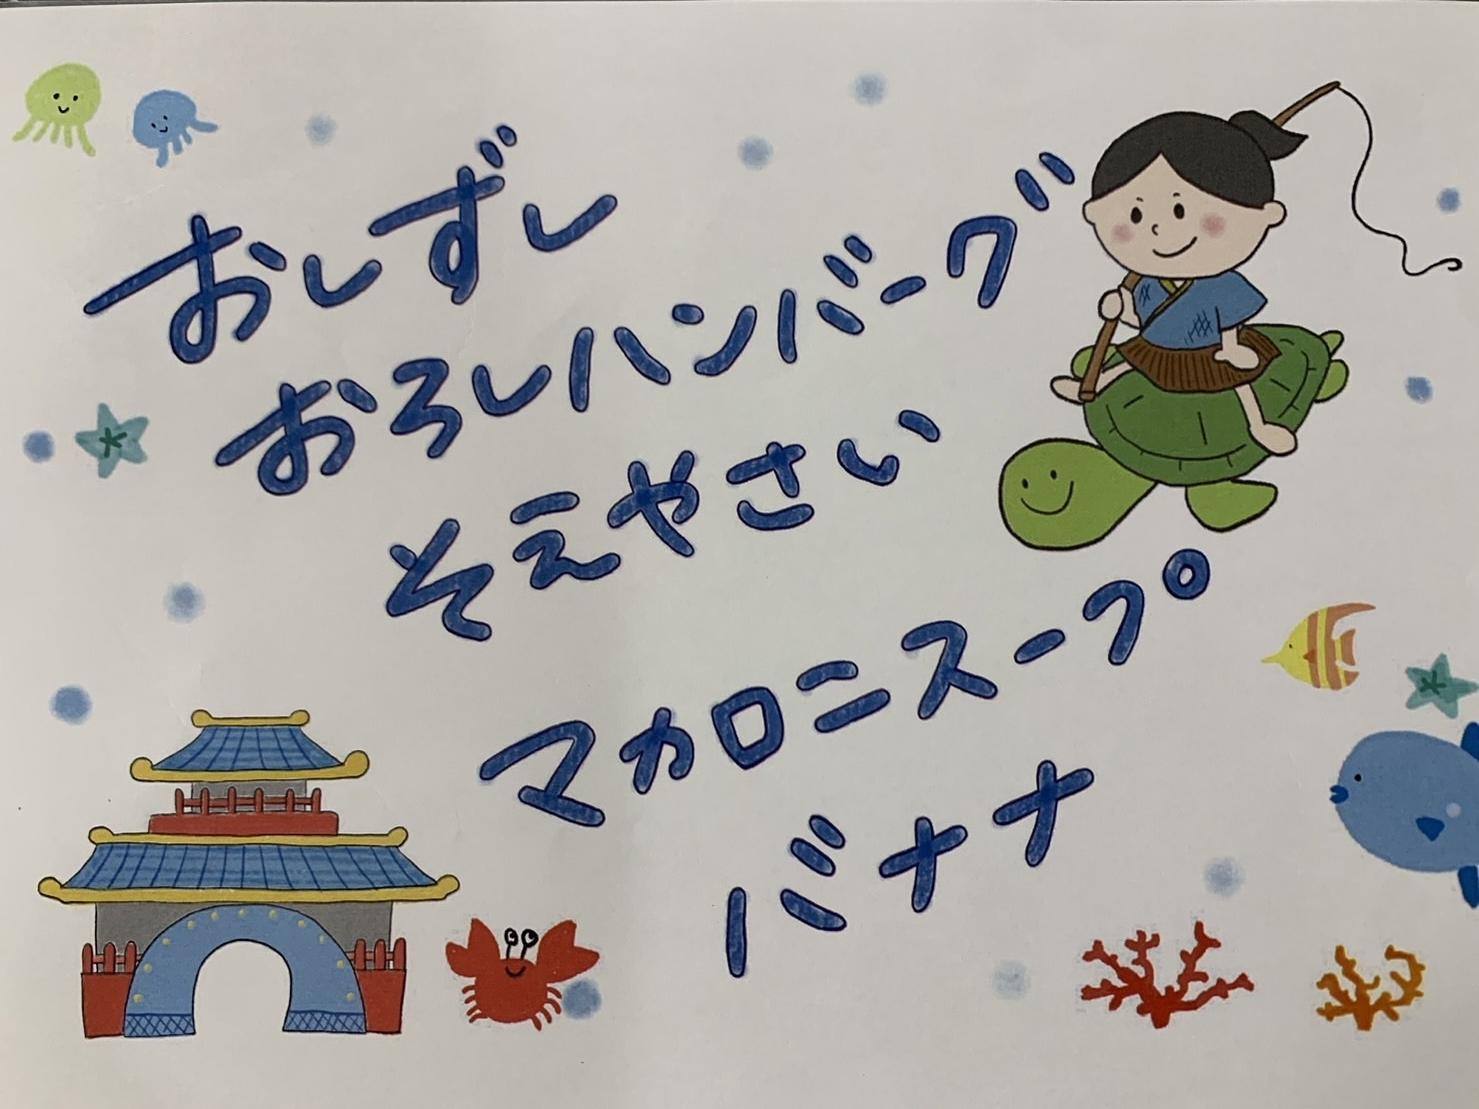 おしずし
おろしハンバーグ
そえやさい
マカロニスープ
バナナ